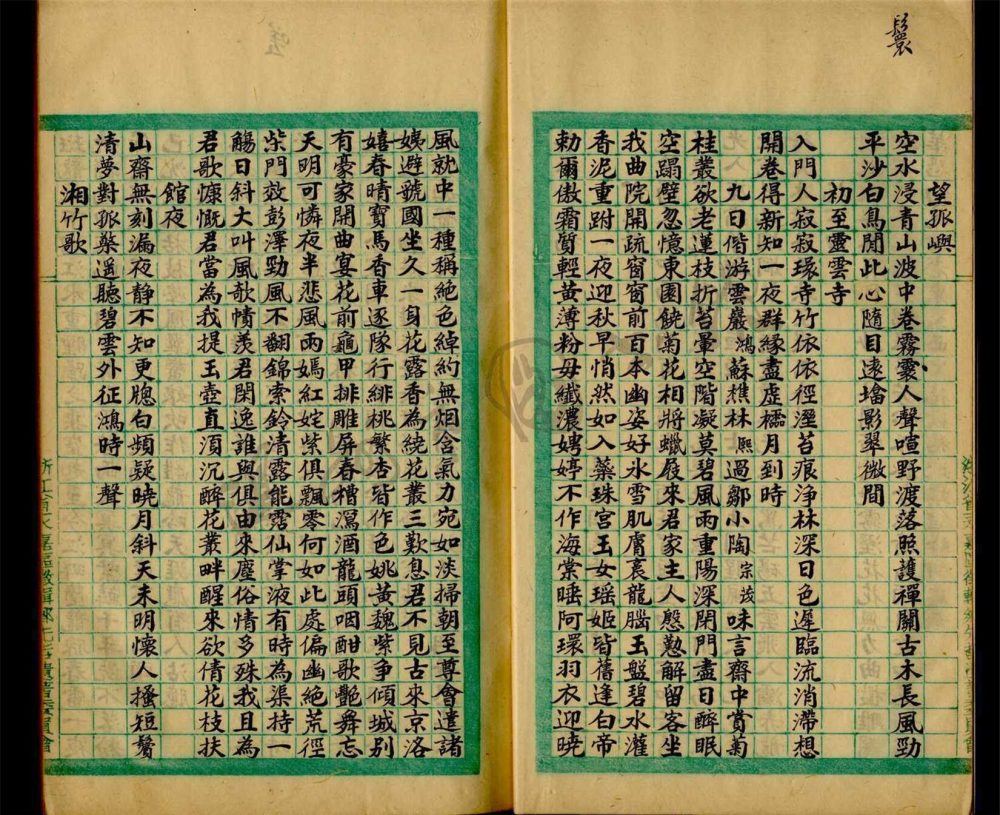 鬟
望孤嶼
空水浸青山波中卷霧鬟人聲喧野渡落照護禪關古木長風勁
平沙白鳥閒此心隨目遠墖影翠微間
初至靈雲寺
入門人寂寂環寺竹依依徑溼苔痕淨林深日色遲臨流消滯想
開卷得新知一夜群緣盡虛櫺月到時
九日偕游雲巖鴻蘇樵林熙過鄒小陶宗茂味言齋中賞菊
桂叢欲老蓮枝折苔暈空階凝莫碧風雨重陽深閉門盡日醉眠
空蹋壁忽憶東園饒菊花相將蠟屐來君家主人慇懃解留客坐
我曲院開疏窗窗前百本幽姿好冰雪肌膚裏龍腦玉盤碧水灌
香泥重跗一夜迎秋早悄然如入蘂珠宮玉女瑶姬皆舊逢白帝
勅爾傲霜質輕黃薄粉毋纖濃娉婷不作海棠睡阿環羽衣迎曉
風就中一種稱絕色綽約無烟含氣力宛如淡掃朝至尊會遣諸
姨避虢國坐久一身花露香為繞花叢三歎息君不見古來京洛
嬉春晴寶馬香車逐隊行緋桃繁杏皆作色姚黃魏紫爭傾城別
有豪家開曲宴花前龜甲排雕屏春槽瀉酒龍頭咽酣歌艷舞忘
天明可憐夜半悲風雨嫣紅姹紫俱飄零何如此處偏幽絕荒徑
柴門效彭澤勁風不翻錦索鈴清露能霑仙掌液有時為渠持一
觴日斜大叫風欹幘羨君閑逸誰與俱由來塵俗情多殊我且為
君歌慷慨君當為我提玉壺直須沉醉花叢畔醒來欲倩花枝扶
館夜
山齋無刻漏夜靜不知更牕白頻疑曉月斜天未明懷人搔短鬢
清夢對孤檠遥聽碧雲外征鴻時一聲
湘竹歌